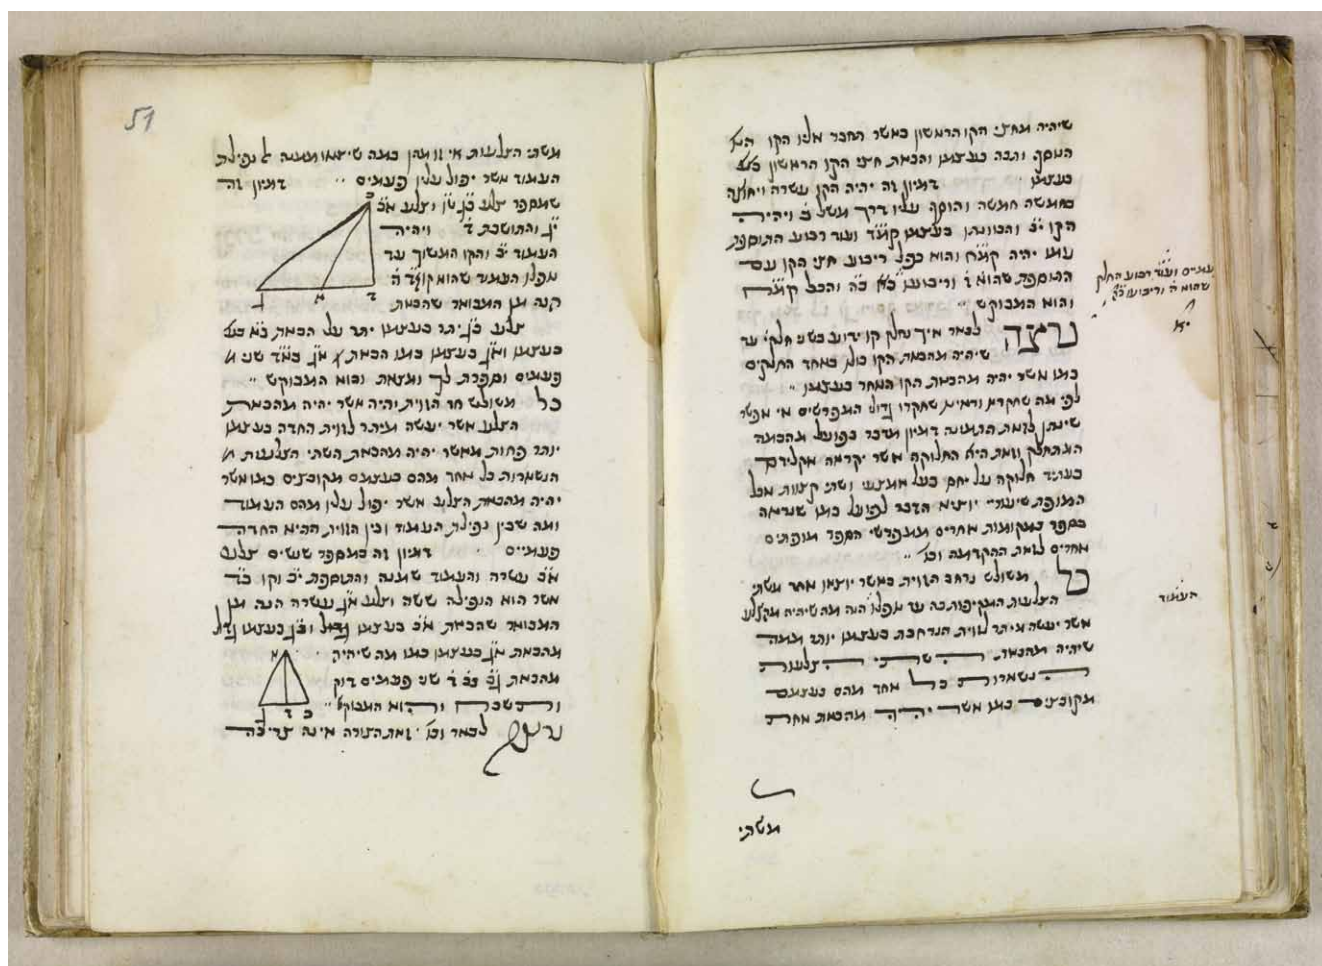 שיהיה מחצי הקו הראשון כאשר התחבר אליו הקו
הנוסף והכה בעצמו והכאת חצי הקו הראשון
בעצמו דמיון זה יהיה הקו עשרה ויחולק
בחמשה חמשה והוסף עליו דרך משל ב ויהיה
הקו יב והכוונתו בעצמו קמד ועוד רבוע התוספת
עמו יהיה קמח והוא כפל ריבוע חצי הקו עם
התוספת שהוא ז וריבועו כה והכל קמח
והוא המבוקש
נרצה לבאר איך נחלק קו ידוע בשני חלקי עד
שיהיה מהכאת הקו כולו באחד החלקים
כמו אשר יהיה מהכאת הקו האחר בעצמו
לפי מה שחקרנו וראינו שחקרו גדולי המפרשים אי אפשר
שינתן לזאת התמונה דמיון מדבר בפועל מהכמה
המתחלק וזאת היא החלוקה אשר יקראה אקלידס
בעתיד חלוקה על יחס בעל אמצעי ושתי קצוות אבל
המופת שיעורי יוציא הדבר לפועל כמו שנראה
בספר במקומות אחרים ממפרשי הספר מופתים
אחרים לזאת ההקדמה וכו
כל משולש נרחב הזוית כאשר יוצאו אחד משתי
הצלעות המקיפות בה עד אפלו הנה מה שיהיה מהצלע
אשר יעשה מיתר לזוית הנרחבת בעצמו יותר ממה
שיהיה מהכאת השתי הצלעות
הנשארות כל אחד מהם בעצמם
מקובצים כמו אשר יהיה מהכאת אחת
משתי
פעמים ועוד רבוע החלק
שהוא ה וריבועו כה
העמוד
51
משתי הצלעות אי זו מהן במה שיצאו ממנה לנפילת
העמוד אשר יפול עליו פעמים דמיון זה
שמספר צלע בג טו וצלע אב
יג והתושבת ד ויהיה
העמוד יב והקו המשוך עד
אפלו העמוד שהוא קו אד ה
קנה מן המבואר שהכאת
צלע בג יתר בעצמו יתר על הכאת בא
בעצמו ואג בעצמו כמו הכאת אג באד שני
פעמים וספרת לך ומצאת והוא המבוקש
כל משולש חד הזוית יהיה אשר יהיה מהכאת
הצלע אשר יעשה מיתר לזוית החדה בעצמו
יותר פחות מאשר יהיה מהכאת השתי הצלעות
הנשארות כל אחד מהם בעצמם מקובצים כמו אשר
יהיה מהכאת הצלע אשר יפול עליו מהם העמוד
ומה שבין נפילת העמוד ובין הזוית ההיא החדה
פעמיים דמיון זה במספר שנשים צלע
אב עשרה והעמוד שמנה והתוספת יב וקו בד
אשר הוא הנפילה ששה וצלע אג עשרה הנה מן
המבואר שהכאת אב בעצמו גדול ובג בעצמו גדל
מהכאת אג בעצמו כמו מה שיהיה
מהכאת גב בד שני פעמים דוק
ותשכח והוא המבוקש
נרצה לבאר וכו וזאת הצורה אינה צריכה